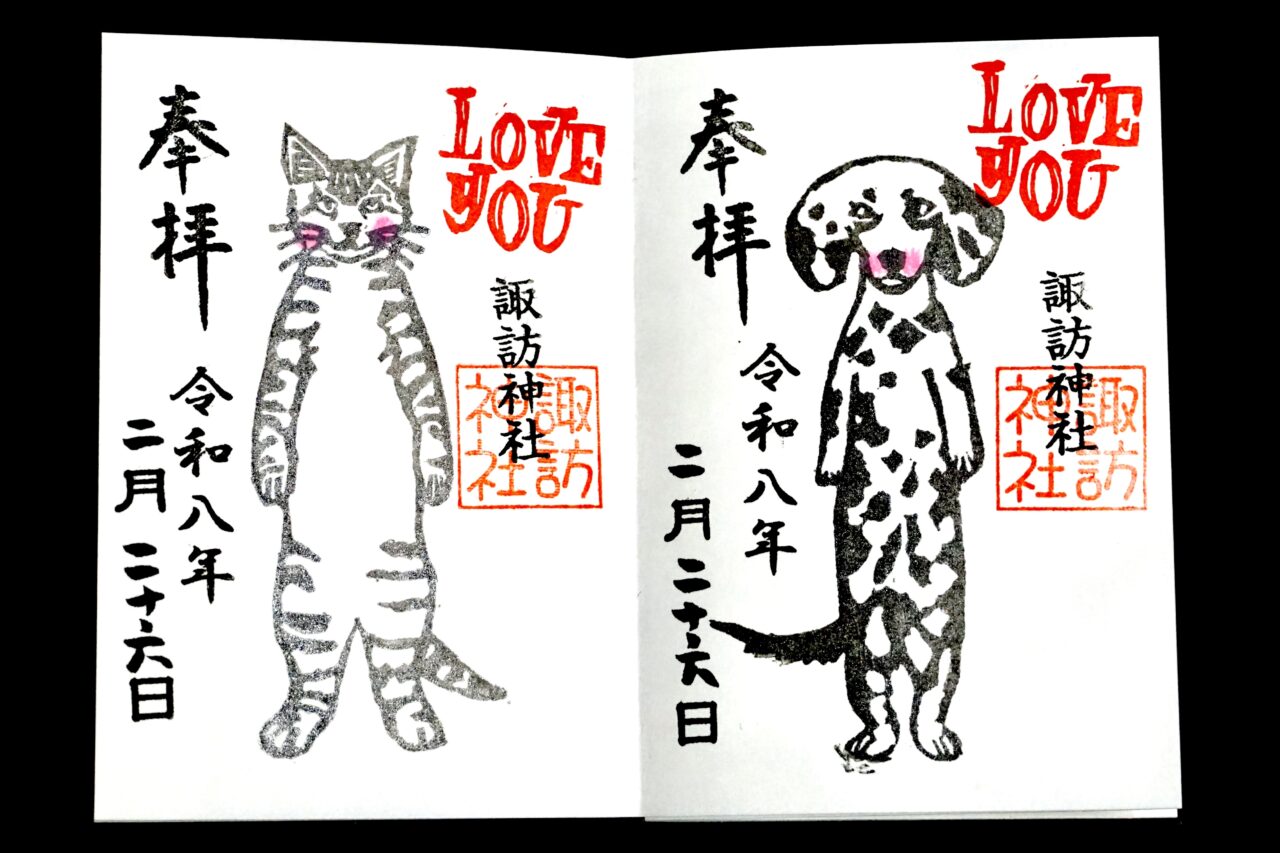 奉拝
LOVE
YOU
諏訪神社
諏訪
神社
令和八年
二月二十六日
奉拝
LOVE
YOU
諏訪神社
諏訪
神社
令和八年
二月二十六日